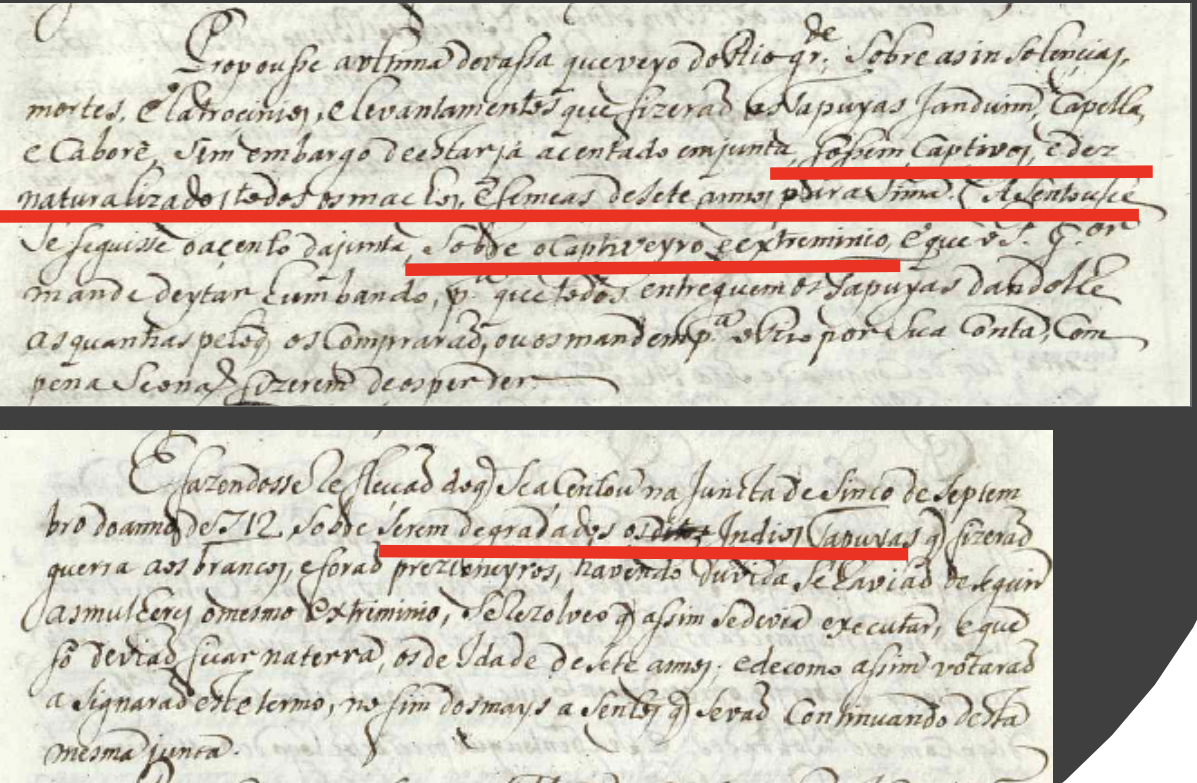 Propousse a vltima devassa que veyo do Rio gr.de Sobre as insolencias,
mortes, e latrocinios, e levantamentos que fizeraõ os Tapuyas Janduim, Capella,
e Caborê, Sim embargo de estar já acentado em junta, fossem Captivos, e dez
naturalizados todos os machos, e femeas de sete annos para Sima. Asentousse
se seguisse o acento da junta, Sobre o Captiveyro, e extreminio, e que o S.r G.or
mande deytar hum bando, p.a que todos entreguem os Tapuyas dandolhe
as quantias pelo q os Compraraõ, ou os mandem p.a o Rio por Sua Conta, Com
pena Se o naõ fizerem de os perder
E fazendosse Reflecçaõ do q Se a Centou na Juncta de Sinco de Septem
bro do anno de 712 Sobre serem degradados os Indios Tapuyas q fizeraõ
guerra aos brancos, e foraõ prezioneyros, havendo duvida se haviaõ de seguir
as mulheres o mesmo extriminio, Se Rezolveo q assim se devia executar, e que
só deviaõ ficar na terra, os de Idade de sete annos; e de como assim votaraõ
a Signaraõ este termo, no fim dos mays a Sentos q Se vaõ Continuando desta
mesma junta.